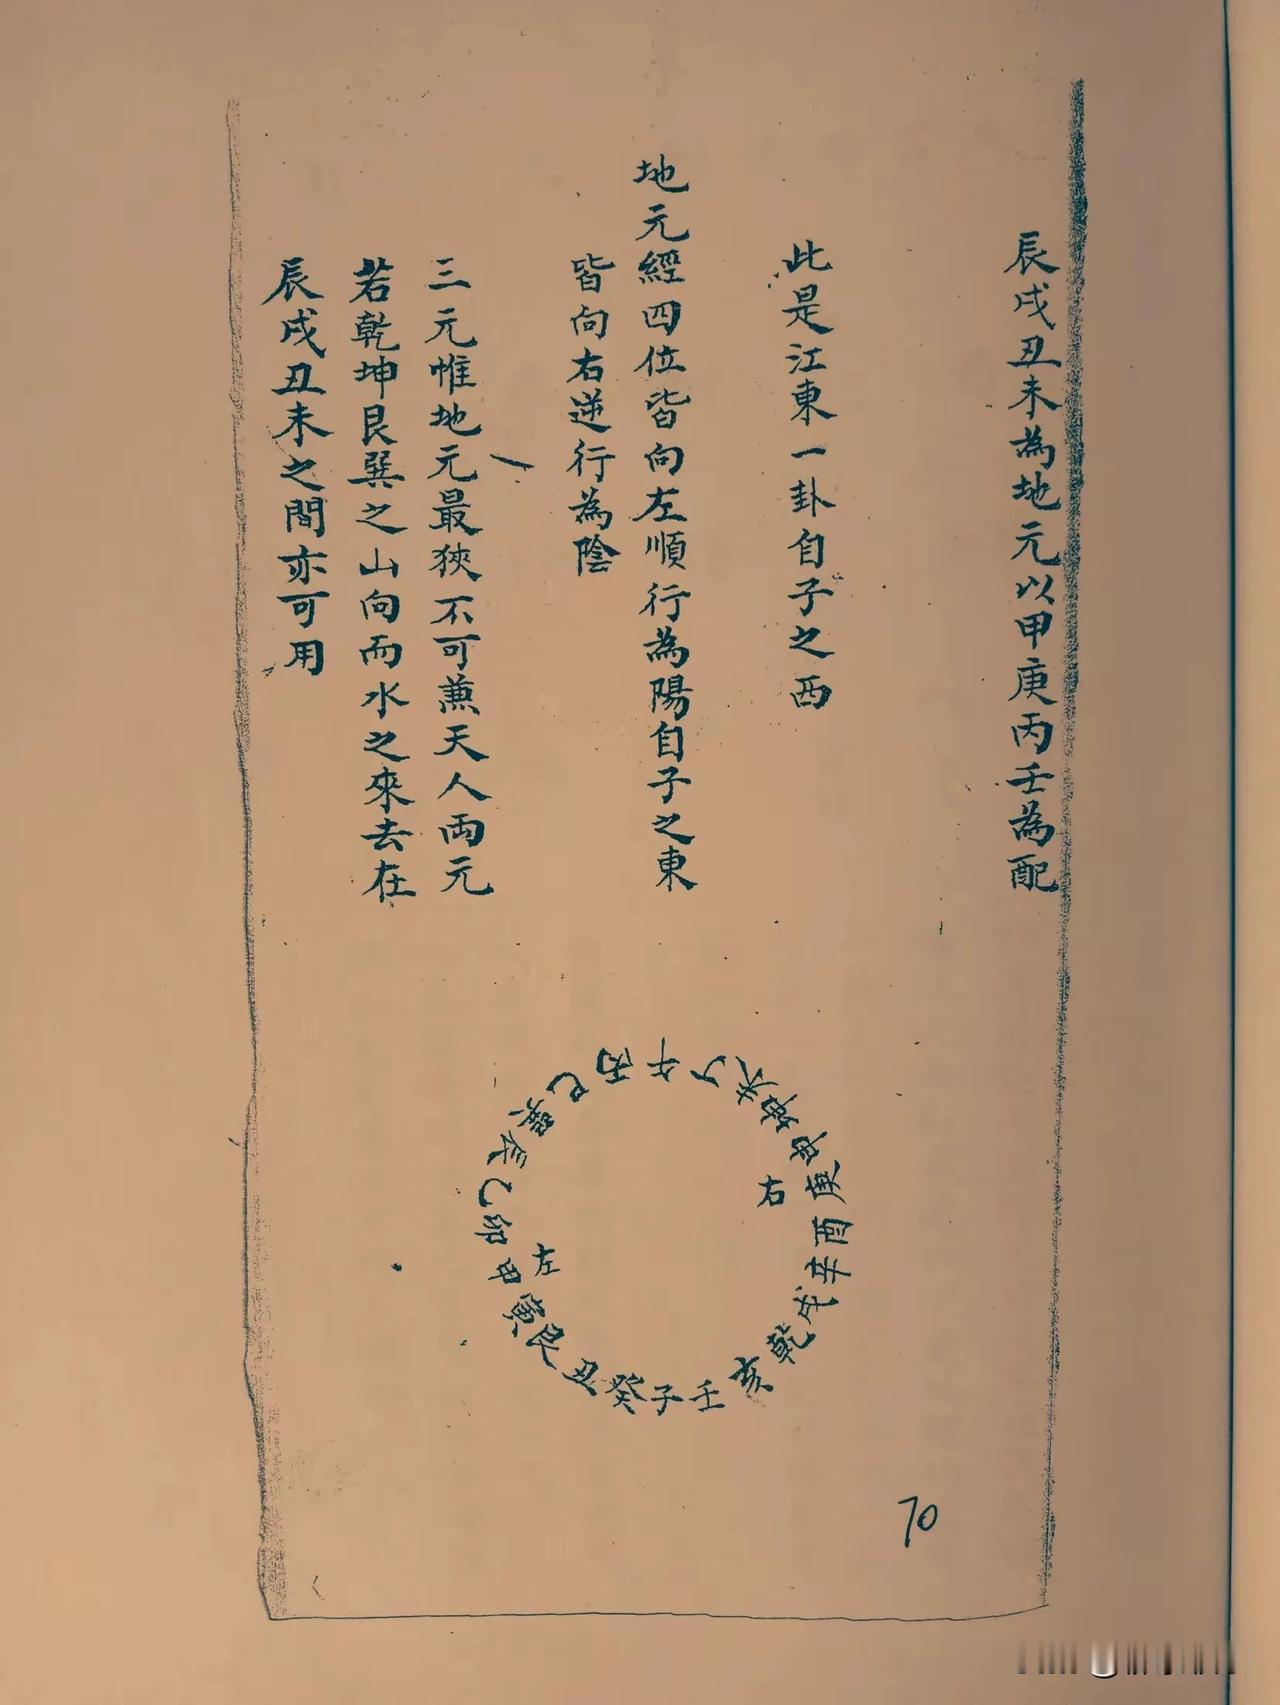 辰戌丑未為地元以甲庚丙壬為配
此是江東一卦自子之西
地元經四位皆向左順行為陽自子之東
皆向右逆行為陰
三元惟地元最狹不可兼天人兩元
若乾坤艮巽之山向而水之來去在
辰戌丑未之間亦可用
丙午丁未坤申庚酉辛戌乾亥壬子癸丑艮寅甲卯乙辰巽巳
右
左
70